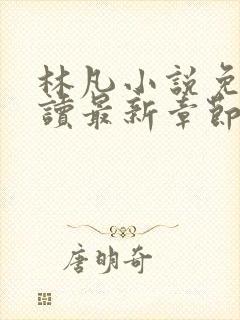 林凡小說免
讀最新章節
唐明奇